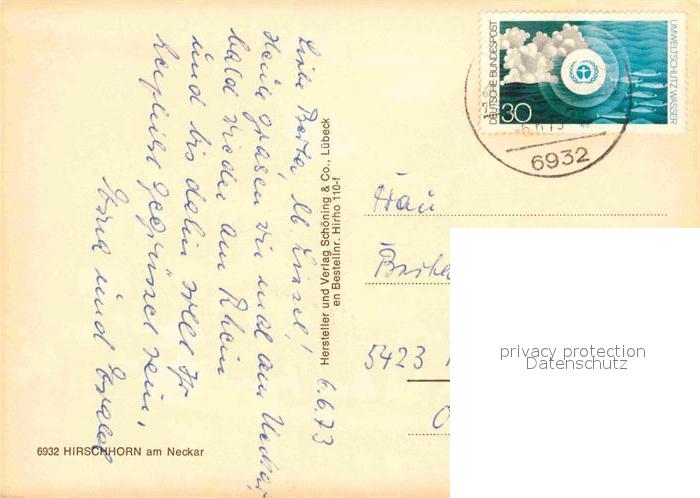 Liebe Berta, lb. Liesel!
Heute grüssen wir mal am Neckar,
bald wieder am Rhein
und bis dahin sollt Ihr
herzlichst gegrüsset sein,
und
6.6.73
Hersteller und Verlag Schöning & Co., Lübeck
en Bestellnr. Hirho 110-f
6932 HIRSCHHORN am Neckar
DEUTSCHE BUNDESPOST
30
UMWELTSCHUTZ WASSER
6932
Frau
Berta
5423
privacy protection
Datenschutz